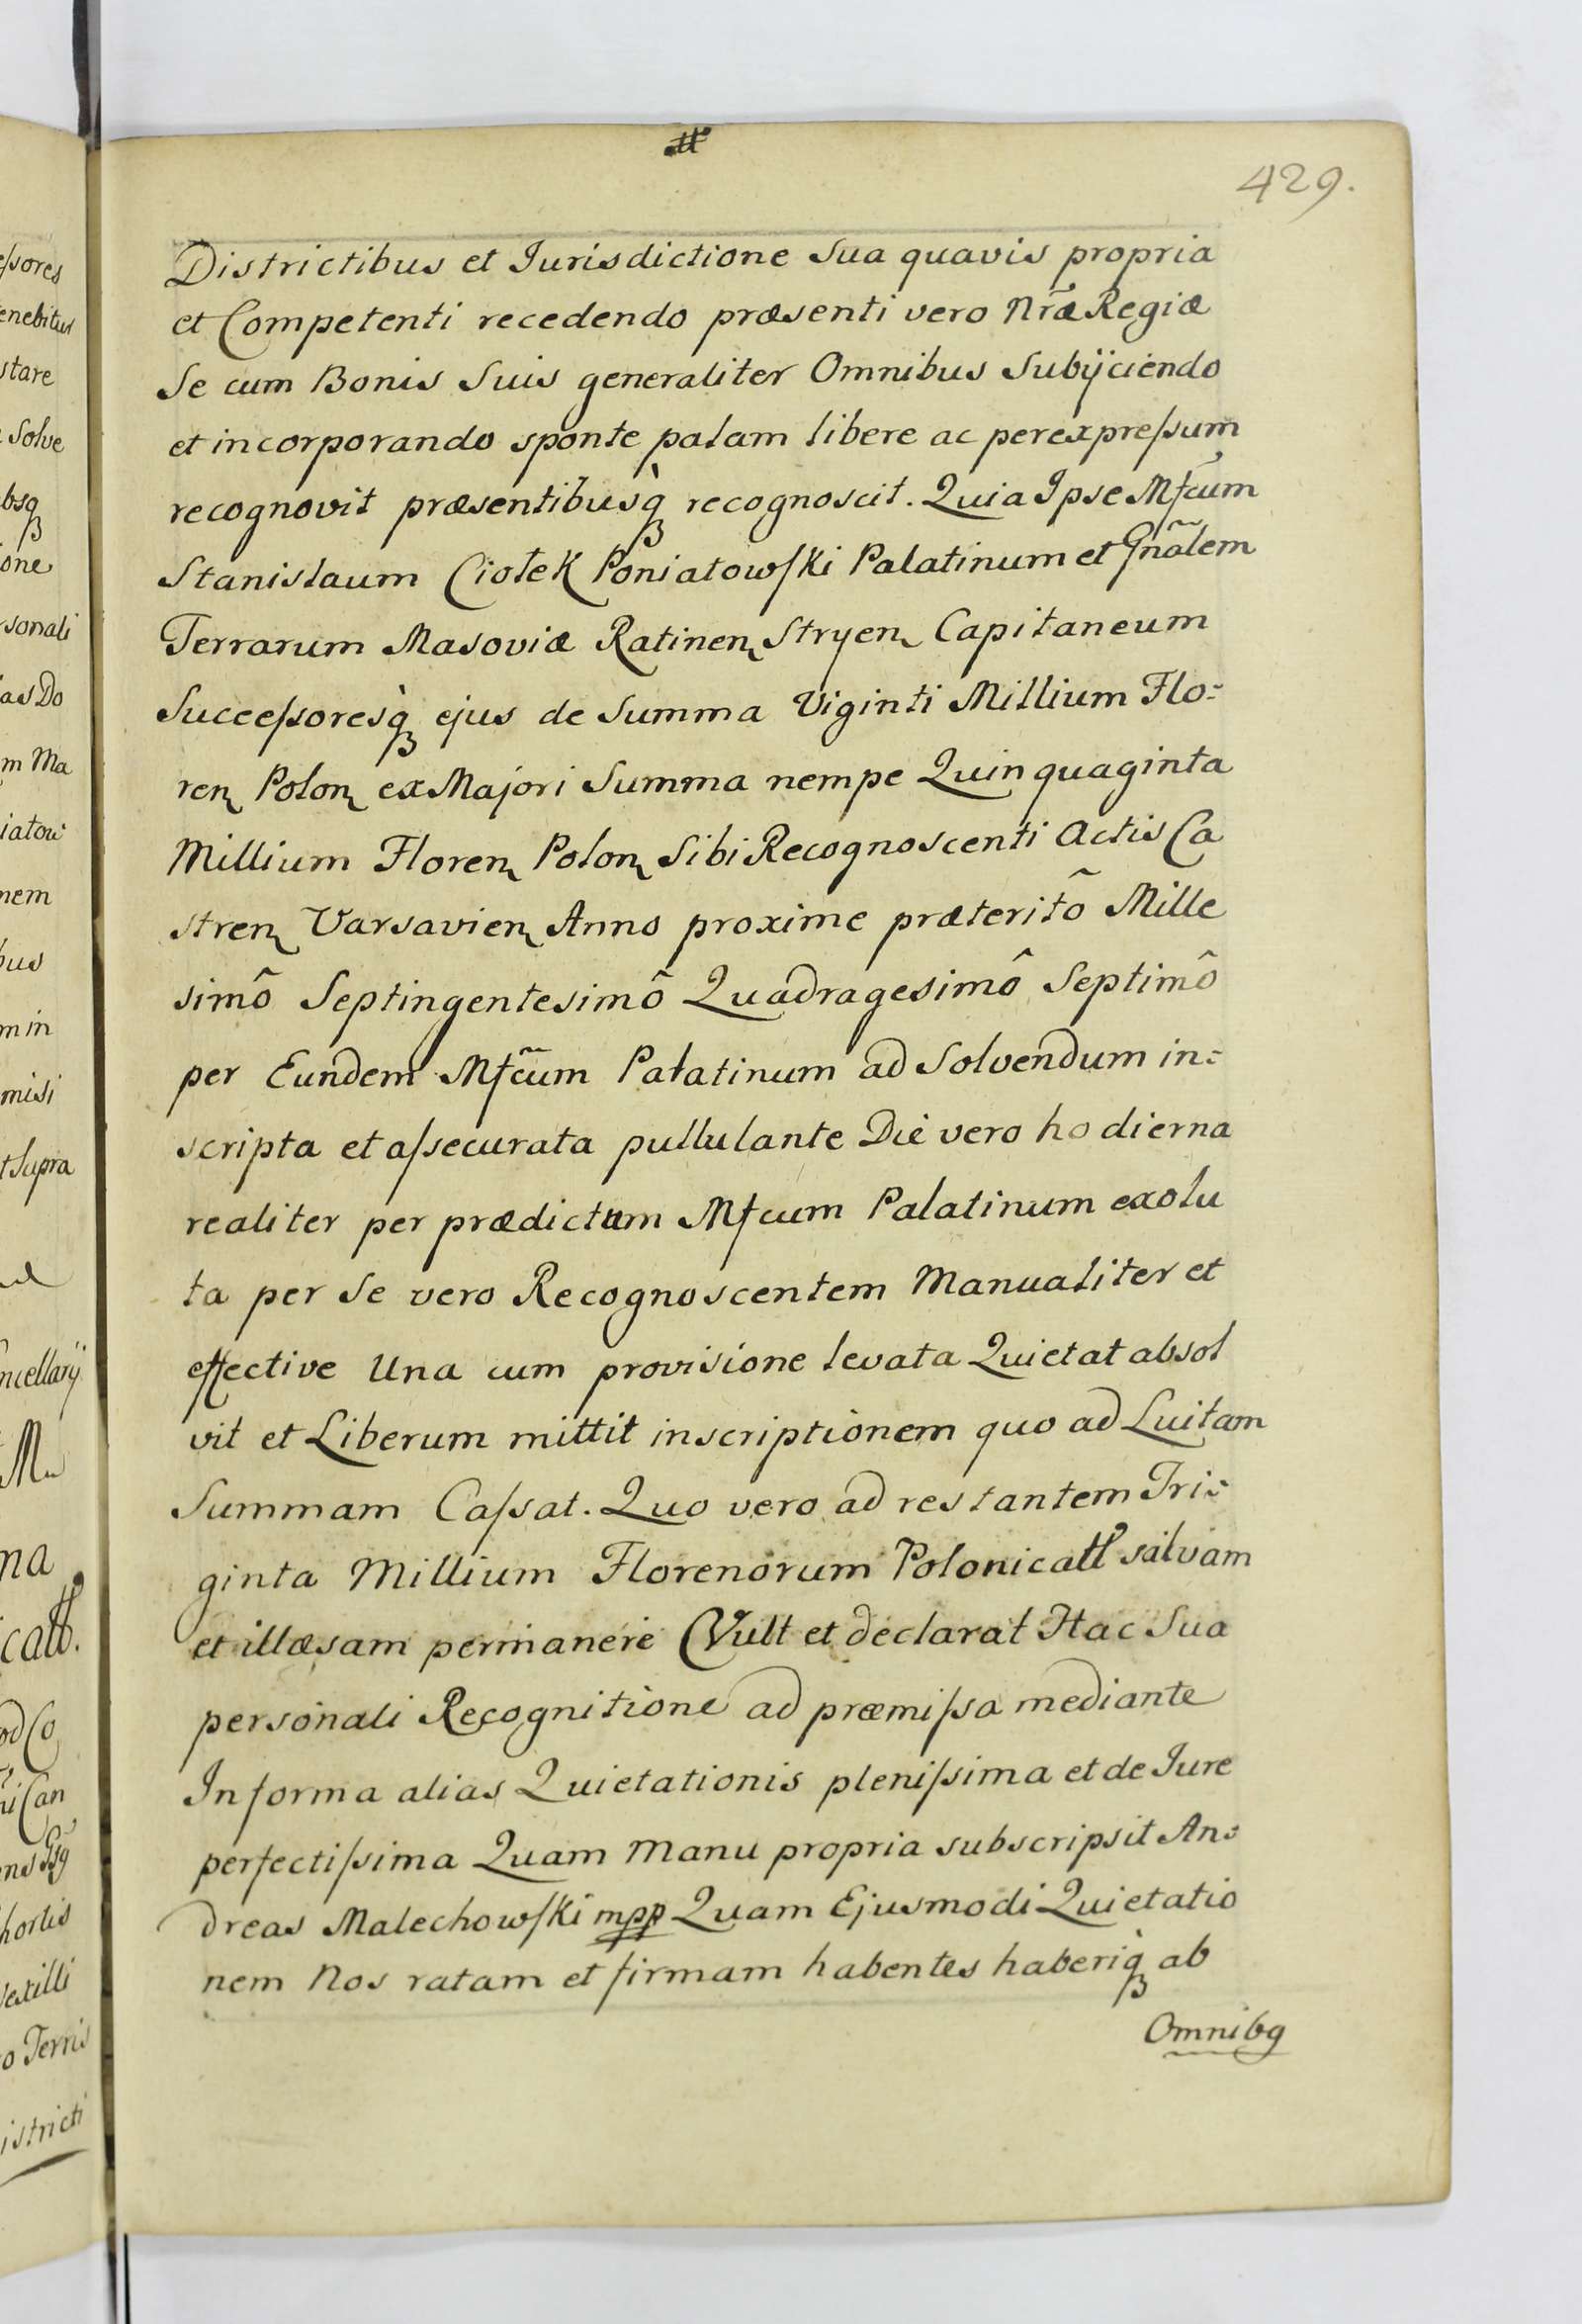 429.
Districtibus et Jurisdictione Sua quavis propria
et Competenti recedendo præsenti vero Nrã Regiæ
Se cum Bonis Suis generaliter Omnibus Subijciendo
et incorporando sponte palam libere ac perexpreſsum
recognovit præsentibusq̀ recognoscit. Quia Ipse Mfcum
Stanislaum Ciołek Poniatowſki Palatinum et Gnãlem
Terrarum Masoviæ Ratinen Stryen Capitaneum
Succeſsoresq̀ ejus de Summa Viginti Millium Flo=
ren Polon ex Majori Summa nempe Quinquaginta
Millium Floren Polon Sibi Recognoscenti Actis Ca
stren Varsavien Anno proxime præteritô Mille
simô Septingentesimô Quadragesimô Septimô
per Eundem Mfcum Palatinum ad Solvendum in=
scripta et aſsecurata pullulante Die vero hodierna
realiter per prædictum Mfcum Palatinum exolu
ta per Se vero Recognoscentem Manualiter et
effective Una cum provisione levata Quietat absol
vit et Liberum mittit inscriptionem quo ad Luitam
Summam Caſsat. Quo vero ad restantem Tri=
ginta Millium Florenorum Polonicall salvam
et illæsam permanere Vult et declarat Hac Sua
personali Recognitione ad præmiſsa mediante
In forma alias Quietationis pleniſsima et de Jure
perfectiſsima Quam Manu propria subscripsit An=
dreas Malechowſki mpp Quam Ejusmodi Quietatio
nem Nos ratam et firmam habentes haberiq̀ ab
Omnibg
eſsores
enebitur
stare
Solve
bsq
one
sonali
as Do
m Ma
iatow
nem
bus
m in
misi
t Supra
ncellarij
M
na
call.
od Co
ni Can
hortis
Vexilli
o Terris
istricti